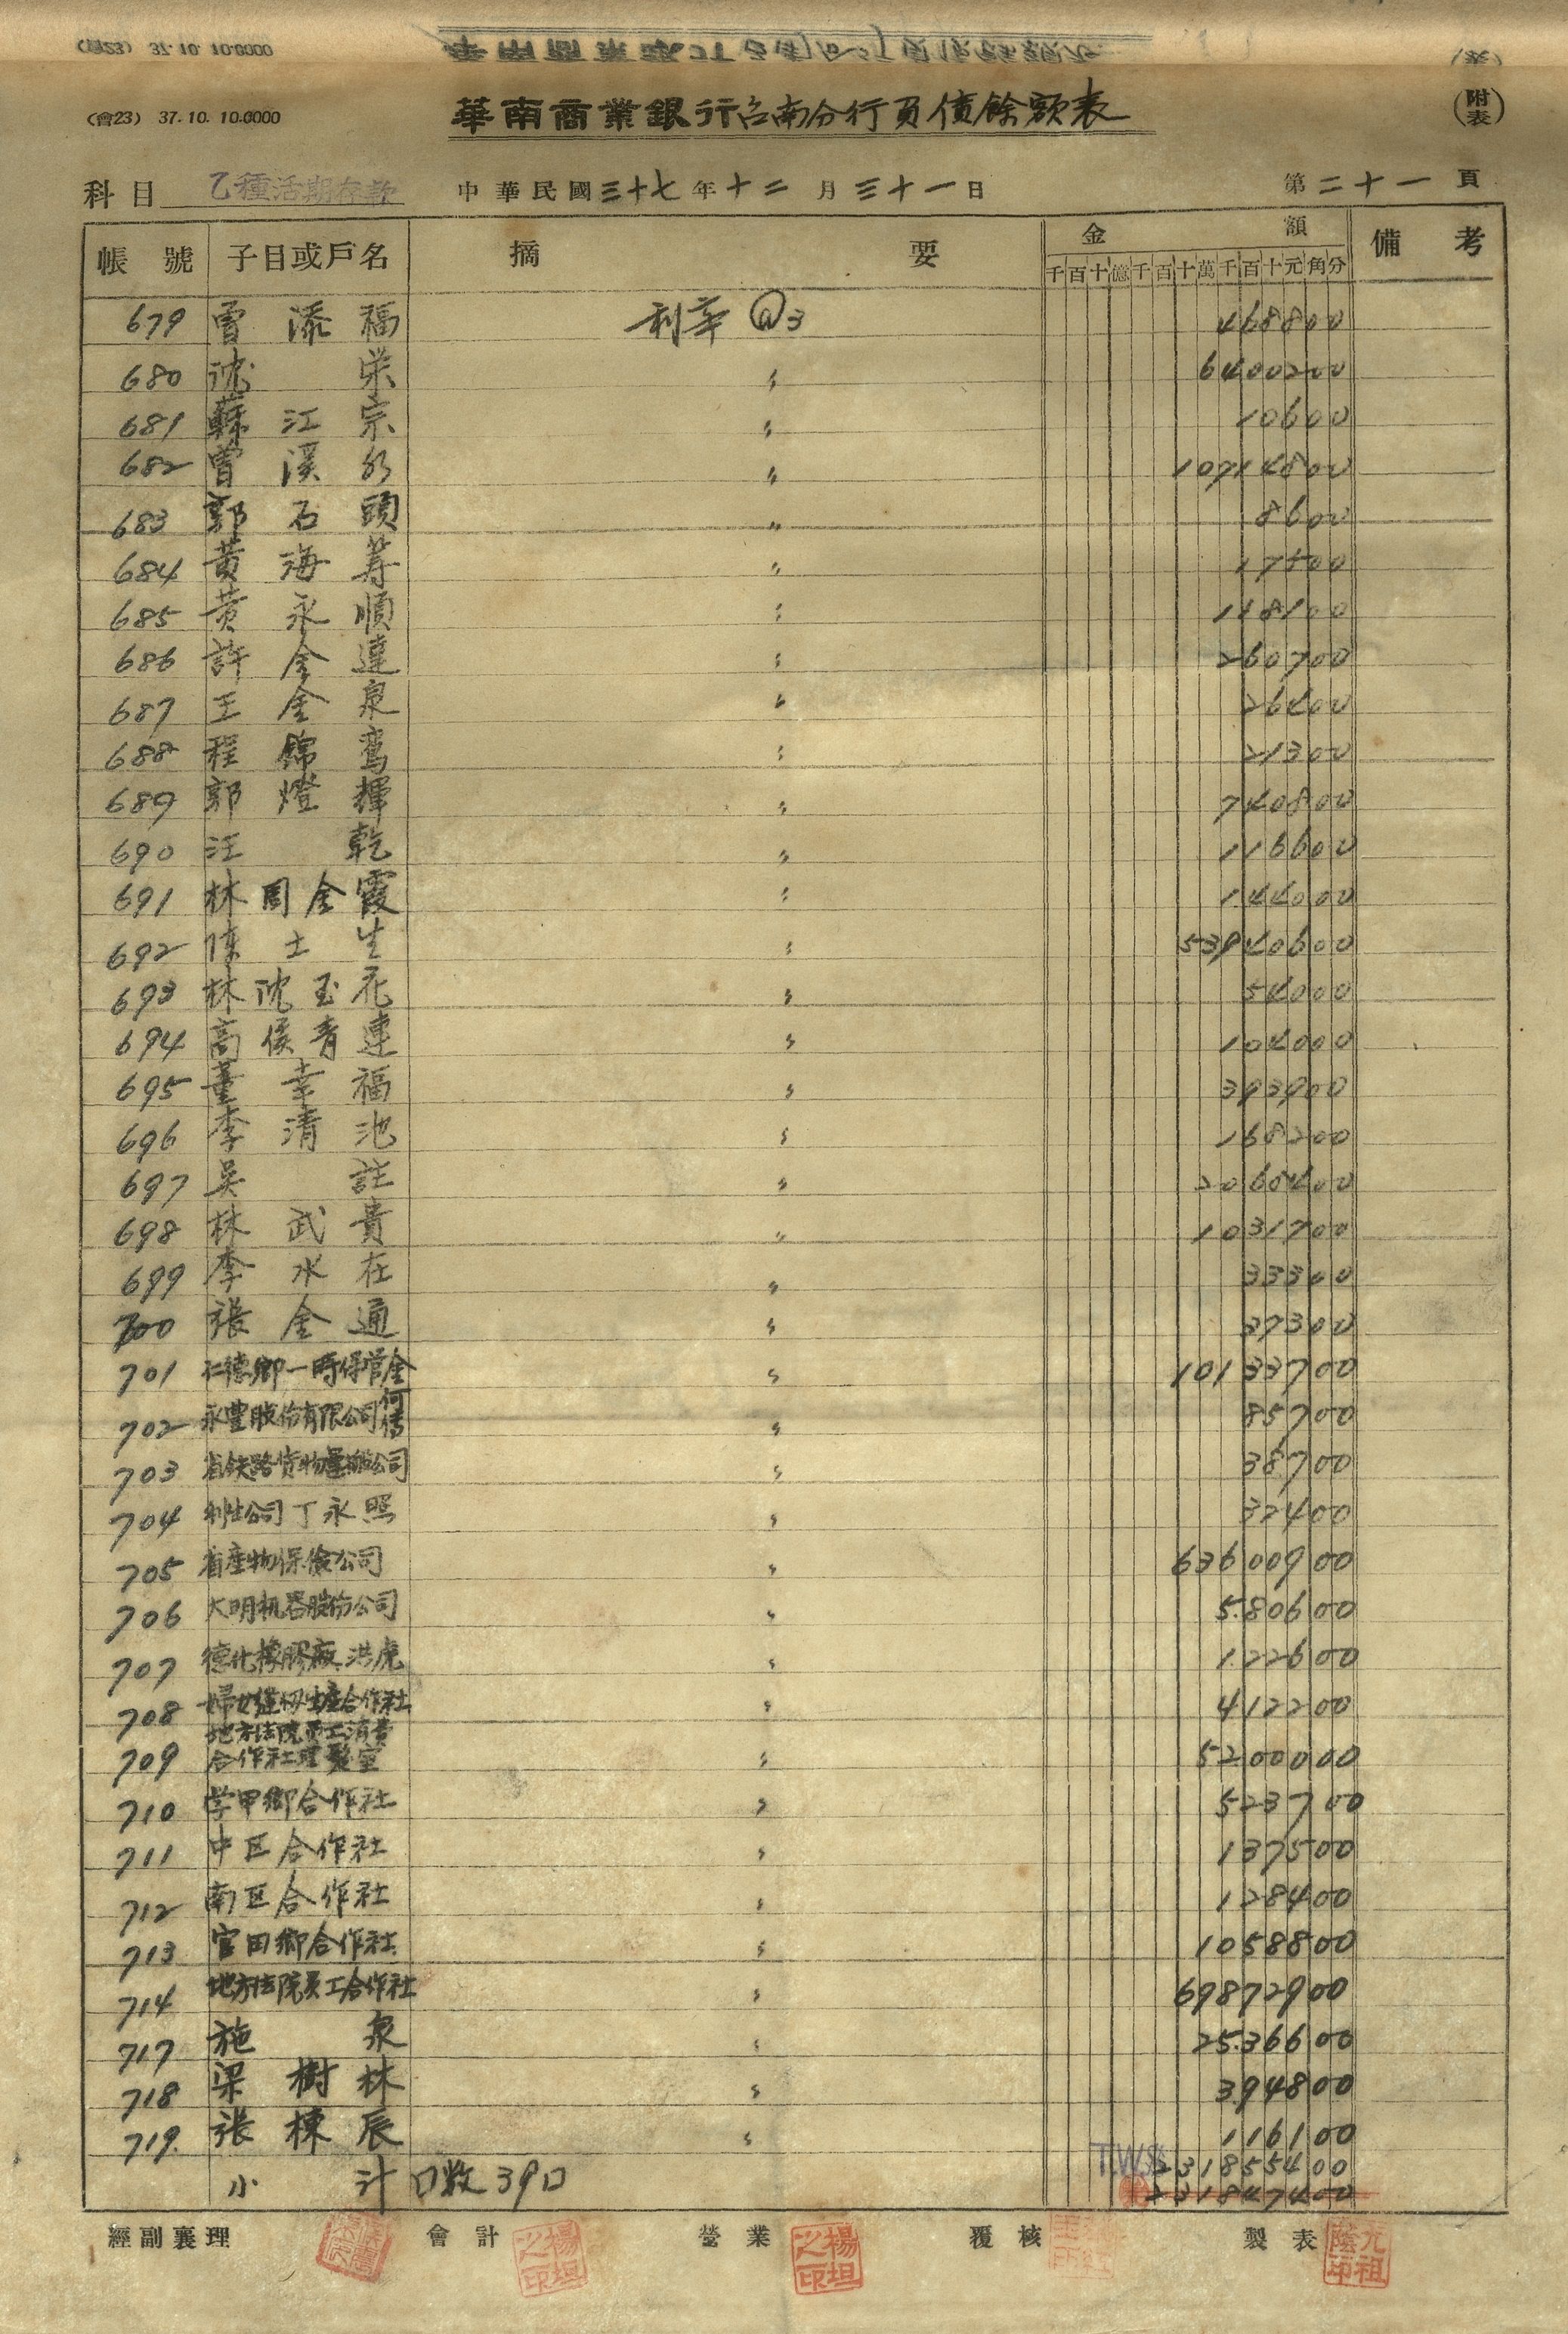 (會23) 37.10. 10.0000
華南商業銀行台南分行負債餘額表
(附表)
科目 乙種活期存款 中華民國三十七年十二月三十一日 第二十一頁
帳號 子目或戶名 摘要 金額 備考
千百十億千百十萬千百十元角分
679 曾添福 利率@3 468800
680 沈荣 〃 6400200
681 蘇江宗 〃 10600
682 曾溪水 〃 10714800
683 郭石頭 〃 8600
684 黃海寿 〃 17500
685 黃永順 〃 118100
686 許金達 〃 260700
687 王金泉 〃 26400
688 程錦鸾 〃 21300
689 郭燈輝 〃 740800
690 汪乾 〃 116600
691 林周金霞 〃 144000
692 陳士生 〃 53940600
693 林沈玉花 〃 54000
694 高侯青連 〃 104000
695 董幸福 〃 393900
696 李清池 〃 168200
697 吳註 〃 2065400
698 林武貴 〃 1031700
699 李水在 〃 33300
700 張金通 〃 37300
701 仁德鄉一時保管金 〃 10133700
702 永豐股份有限公司何傳 〃 85700
703 省铁路貨物運輸公司 〃 38700
704 利生公司丁永照 〃 32400
705 省產物保險公司 〃 63600900
706 大明机器股份公司 〃 5.80600
707 德化橡膠廠洪虎 〃 1.22600
708 婦女縫纫生產合作社 〃 412200
709 地方法院員工消費合作社理髮室 〃 5200000
710 学甲鄉合作社 〃 523700
711 中区合作社 〃 137500
712 南区合作社 〃 128400
713 官田鄉合作社 〃 1058800
714 地方法院員工合作社 〃 69872900
717 施泉 〃 25.36600
718 梁樹林 〃 394800
719. 張棟辰 〃 116100
小計 口数39口 T.W.$ 231855400
231847400
經副襄理 會計 營業 覆核 製表
楊坦之印 楊坦之印 光祖蔭印